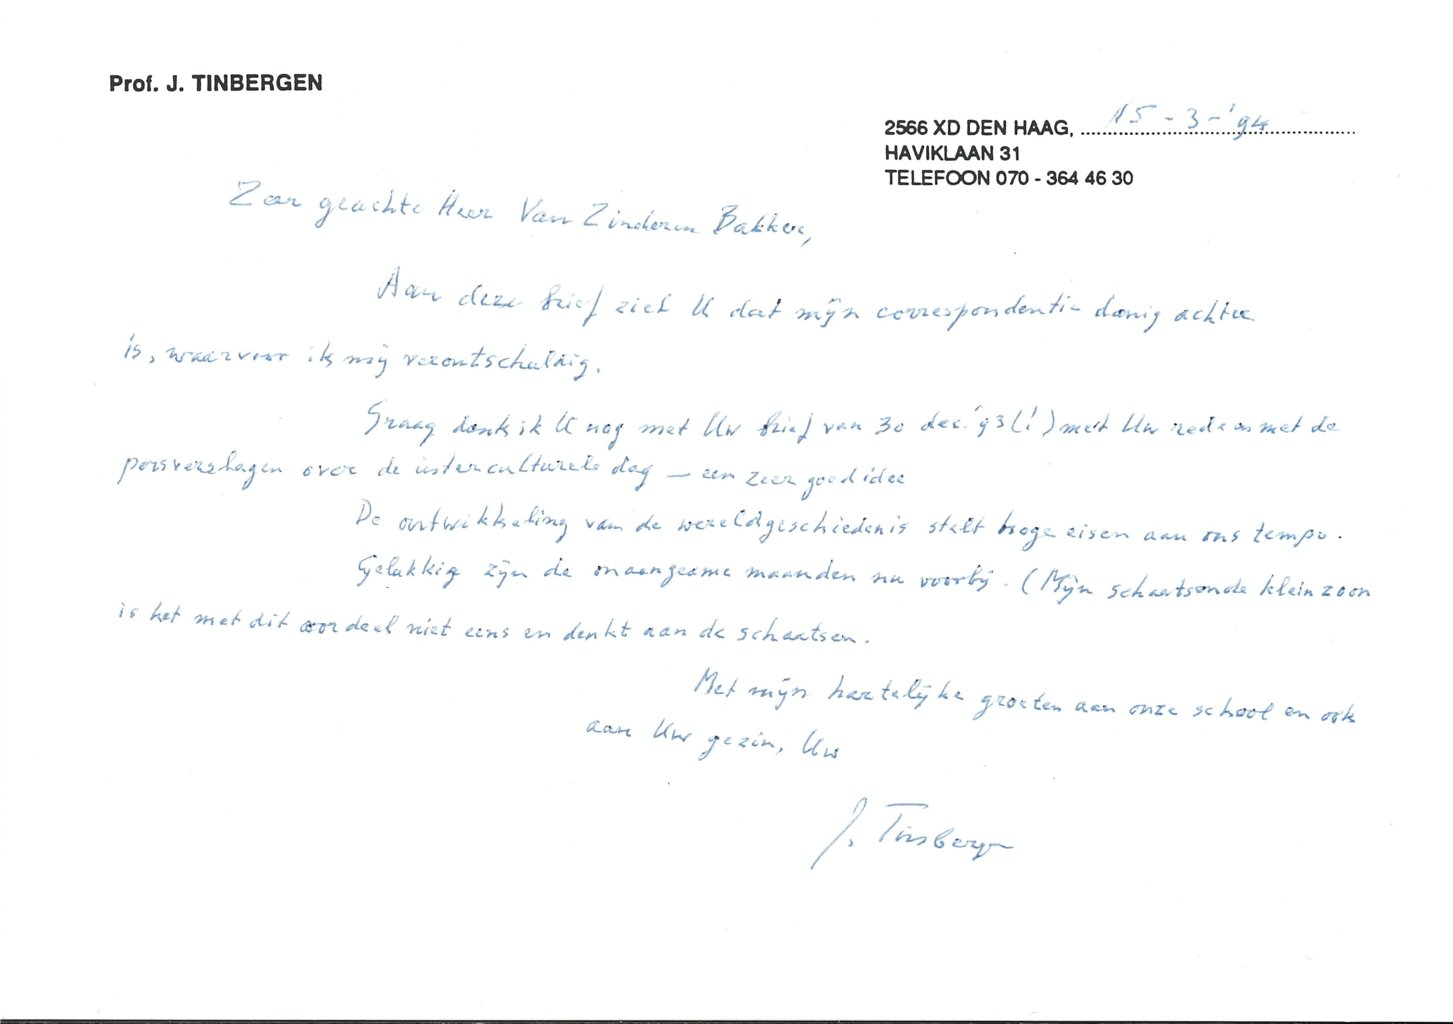 Prof. J. TINBERGEN
2566 XD DEN HAAG, 15-3-'94
HAVIKLAAN 31
TELEFOON 070 - 364 46 30
Zeer geachte Heer Van Zinderen Bakker,
Aan deze brief ziet U dat mijn correspondentie danig achter
is, waarvoor ik mij verontschuldig.
Graag dank ik U nog met Uw brief van 30 dec.'93 (!) met Uw rede en met de
persverslagen over de interculturele dag — een zeer goed idee
De ontwikkeling van de wereldgeschiedenis stelt hoge eisen aan ons tempo.
Gelukkig zijn de onaangename maanden nu voorbij. (Mijn schaatsende kleinzoon
is het met dit oordeel niet eens en denkt aan de schaatsen.
Met mijn hartelijke groeten aan onze school en ook
aan Uw gezin, Uw
J. Tinbergen